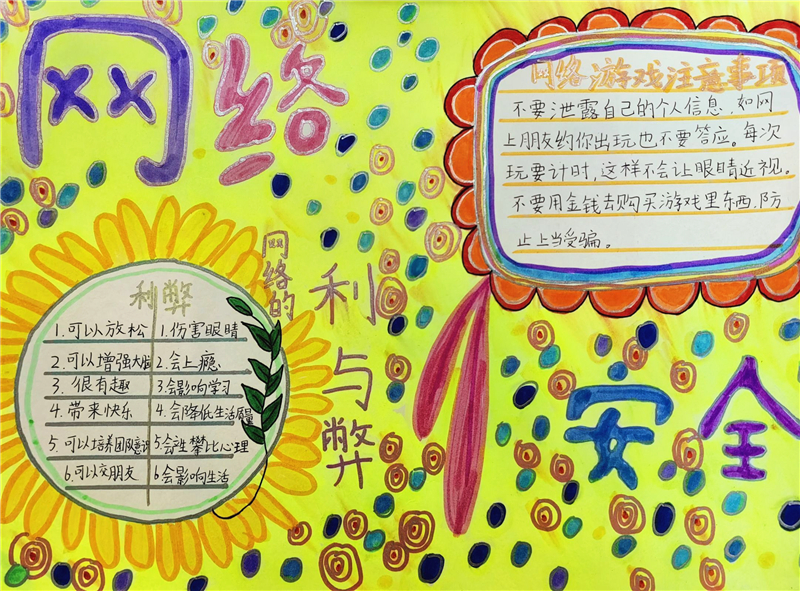 网络
网络游戏注意事项
不要泄露自己的个人信息,如网
上朋友约你出玩也不要答应。每次
玩要计时,这样不会让眼睛近视。
不要用金钱去购买游戏里东西,防
止上当受骗。
网络的
利与弊
利 弊
1.可以放松 1.伤害眼睛
2.可以增强大脑 2.会上瘾
3.很有趣 3.会影响学习
4.带来快乐 4.会降低生活质量
5.可以培养团队意识 5会 攀比心理
6.可以交朋友 6会影响生活
安全